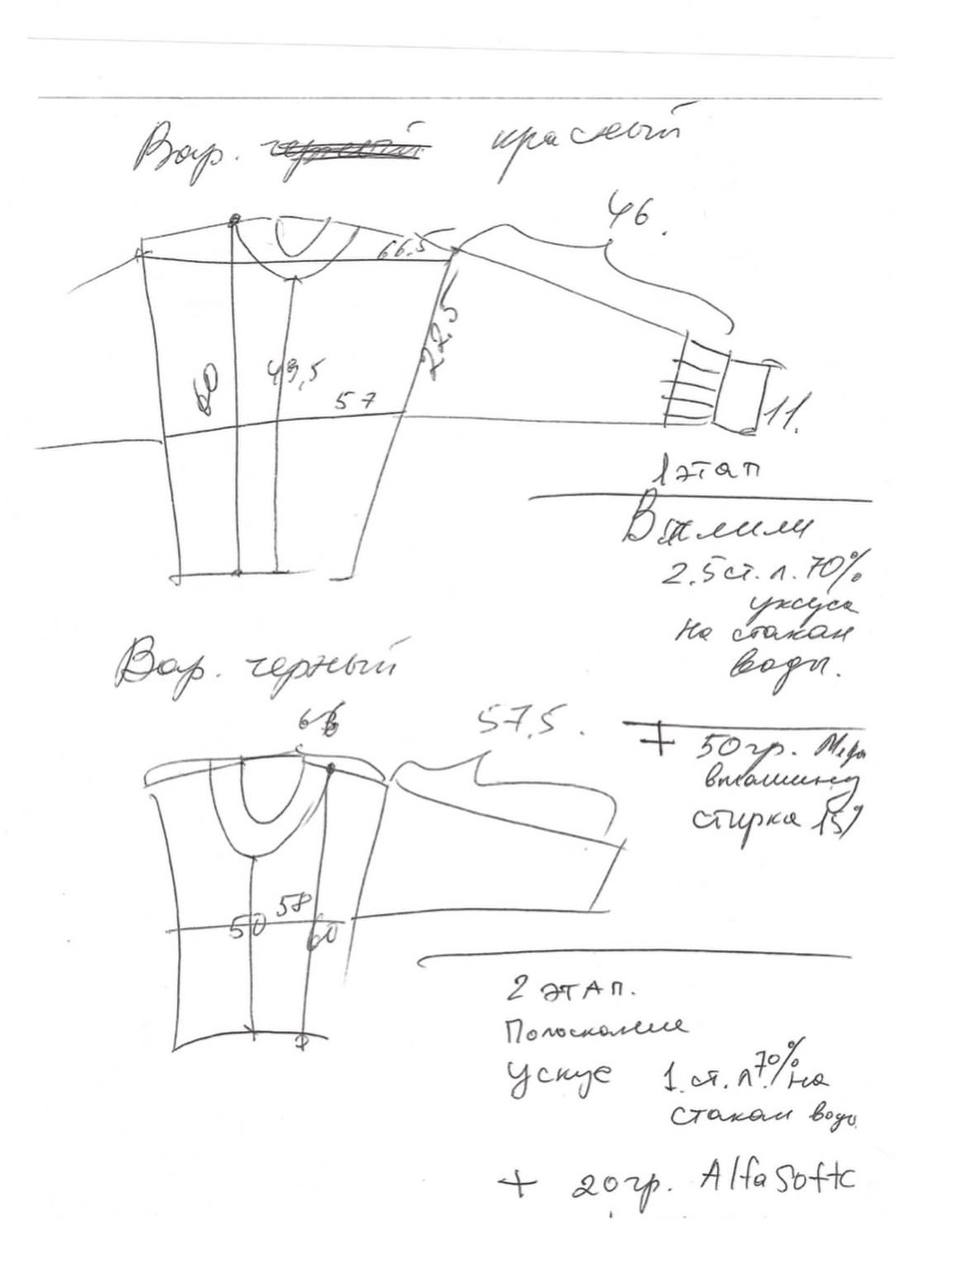 Вар. черный красный
46.
66,5
22,5
60
49,5
57
11.
1 этап
Влили
2,5 ст. л. 70%
уксуса
на стакан
воды.
Вар. черный
66
57,5.
+ 50гр.
в машину
стирка 15'
58
50
60
2 этап.
Полоскание
Уксус 1 ст. л. 70% на
стакан воды
+ 20гр. AlfaSoftc